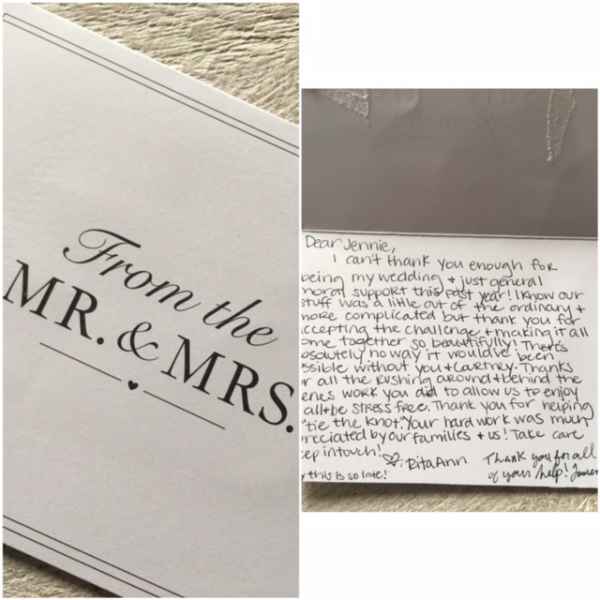 From the
MR. & MRS.
Dear Jennie,
I can't thank you enough for
being my wedding + just general
moral support this past year! I know our
stuff was a little out of the ordinary +
more complicated but thank you for
accepting the challenge + making it all
ome together so beautifully! There's
bsolutely no way it would've been
ssible without you + Courtney. Thanks
r all the rushing around + behind the
enes work you did to allow us to enjoy
all + be stress free. Thank you for helping
"tie the knot". Your hard work was much
reciated by our families + us! Take care
ep in touch!
RitaAnn
Thank you for all
of your help!
y this is so late!